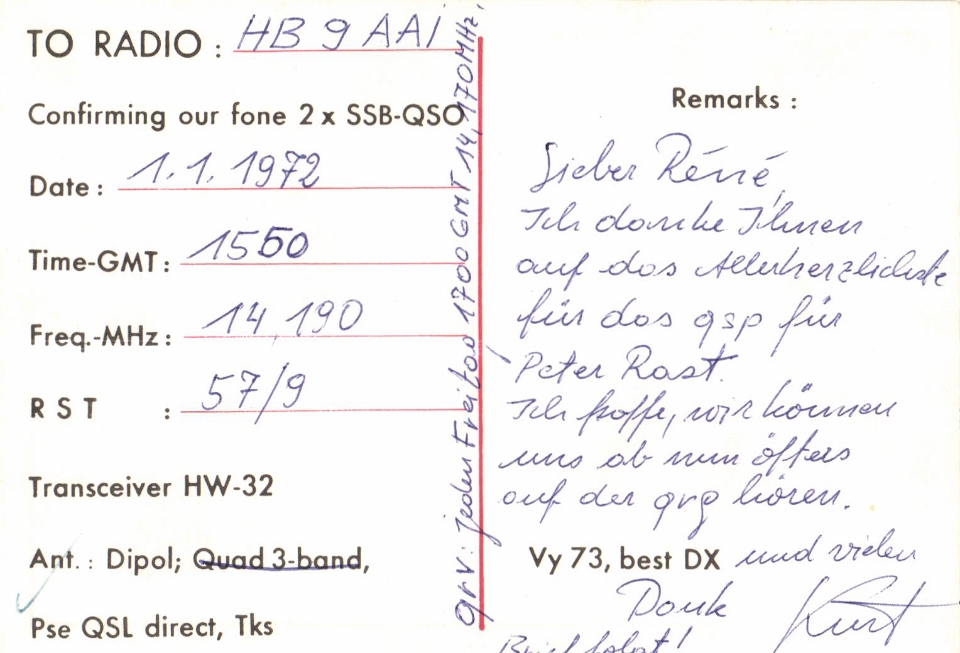 TO RADIO : HB 9 AAI
Confirming our fone 2 x SSB-QSO
Date : 1. 1. 1972
Time-GMT : 1550
Freq.-MHz : 14,190
R S T : 57/9
Transceiver HW-32
Ant. : Dipol; Quad 3-band,
Pse QSL direct, Tks
qrv: jeden Freitag 1700 GMT 14,170MHz,
Remarks :
Lieber Réné,
Ich danke Ihnen
auf das Allerherzlichste
für das qsp für
Peter Rast.
Ich hoffe, wir können
uns ab nun öfters
auf der qrg hören.
Vy 73, best DX und vielen
Dank Kurt
Brief folgt!